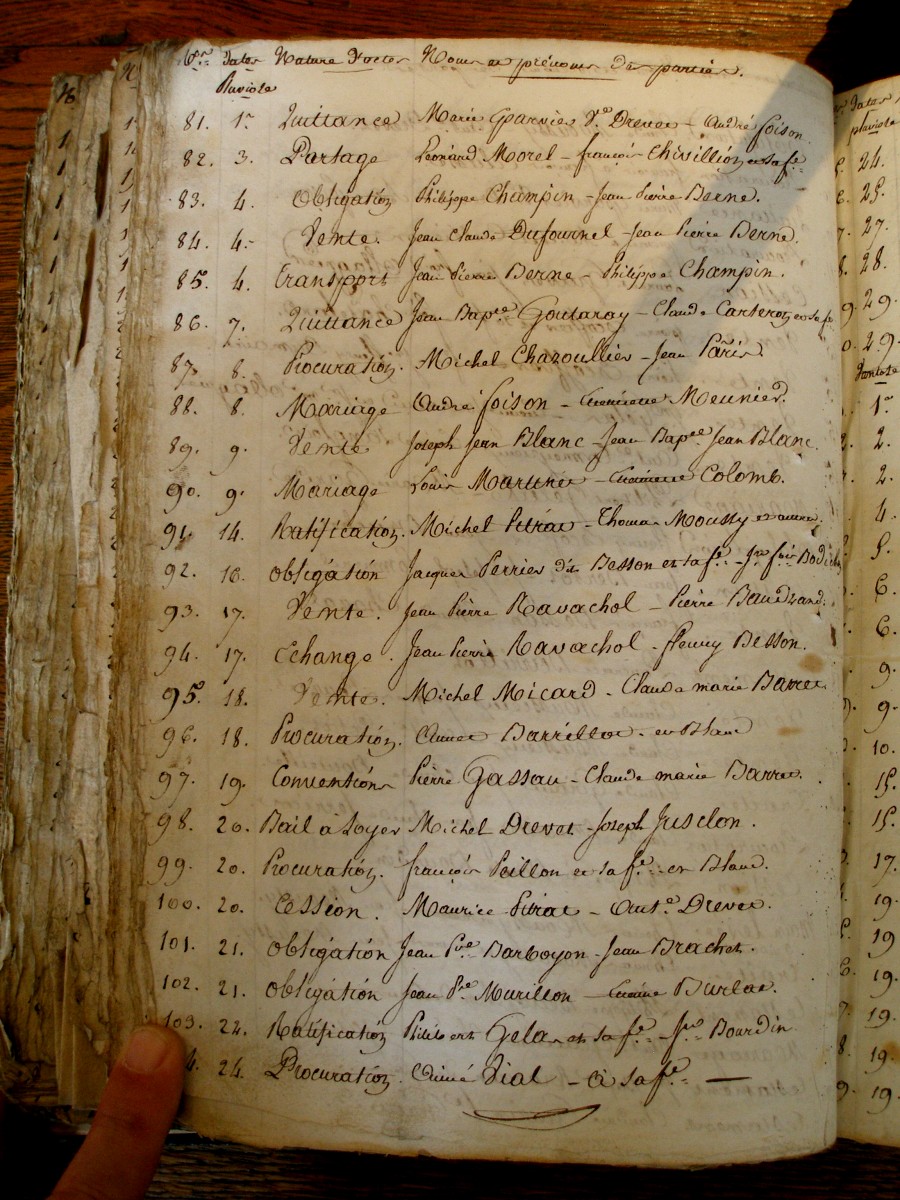 Nos. Dates Nature d'actes Noms et prénoms des parties.
Pluviose
81. 1er Quittance Marie Garnier Ve Drevet - André foison
82. 3. Partage Léonard Morel - françois Chivillion et sa fe
83. 4. Obligation Philippe Champin - Jean Pierre Berne.
84. 4. Vente. Jean Claude Dufournel - Jean Pierre Berne.
85. 4. transport Jean Pierre Berne - Philippe Champin.
86. 7. Quittance Jean Bapte Goutaroy - Claude Carteron et sa fe
87. 8. Procuration. Michel Chazoullier - Jean Paris
88. 8. Mariage André foison - Meunier.
89. 9. Vente Joseph Jean Blanc - Jean Bapte Jean Blanc
90. 9. Mariage Louis Colomb.
91. 14. Ratification. Michel Pitrat - Thomas Moussy et autre.
92. 16. Obligation Jacques Perrier dit Besson et sa fe -
93. 17. Vente. Jean Pierre Ravachol - Pierre Baudrand.
94. 17. Echange. Jean Pierre Ravachol - fleury Besson.
95. 18. Vente. Michel Micard - Claude marie Barret
96. 18. Procuration. - en Blanc
97. 19. Convention Pierre Gassau - Claude marie Barret.
98. 20. Bail à Loyer Michel Drevet - Joseph Jusclon.
99. 20. Procuration. françois Peillon et sa fe - en Blanc.
100. 20. Cession. Maurice Pitrat - Ante Drevet.
101. 21. Obligation Jean Pre Barboyon - Jean Brachet.
102. 21. Obligation Jean Pre Murillon - Burlat.
103. 22. Ratification Philibert Gela et sa fe - Bourdin
4. 24. Procuration. Aimé Vial - à sa fe -
Dates
pluviose
24.
25.
27.
28.
29.
29.
Ventose
1er
2.
2.
4.
5.
6.
6.
9.
9.
10.
15.
15.
17.
19.
19
19.
19.
19.
19.